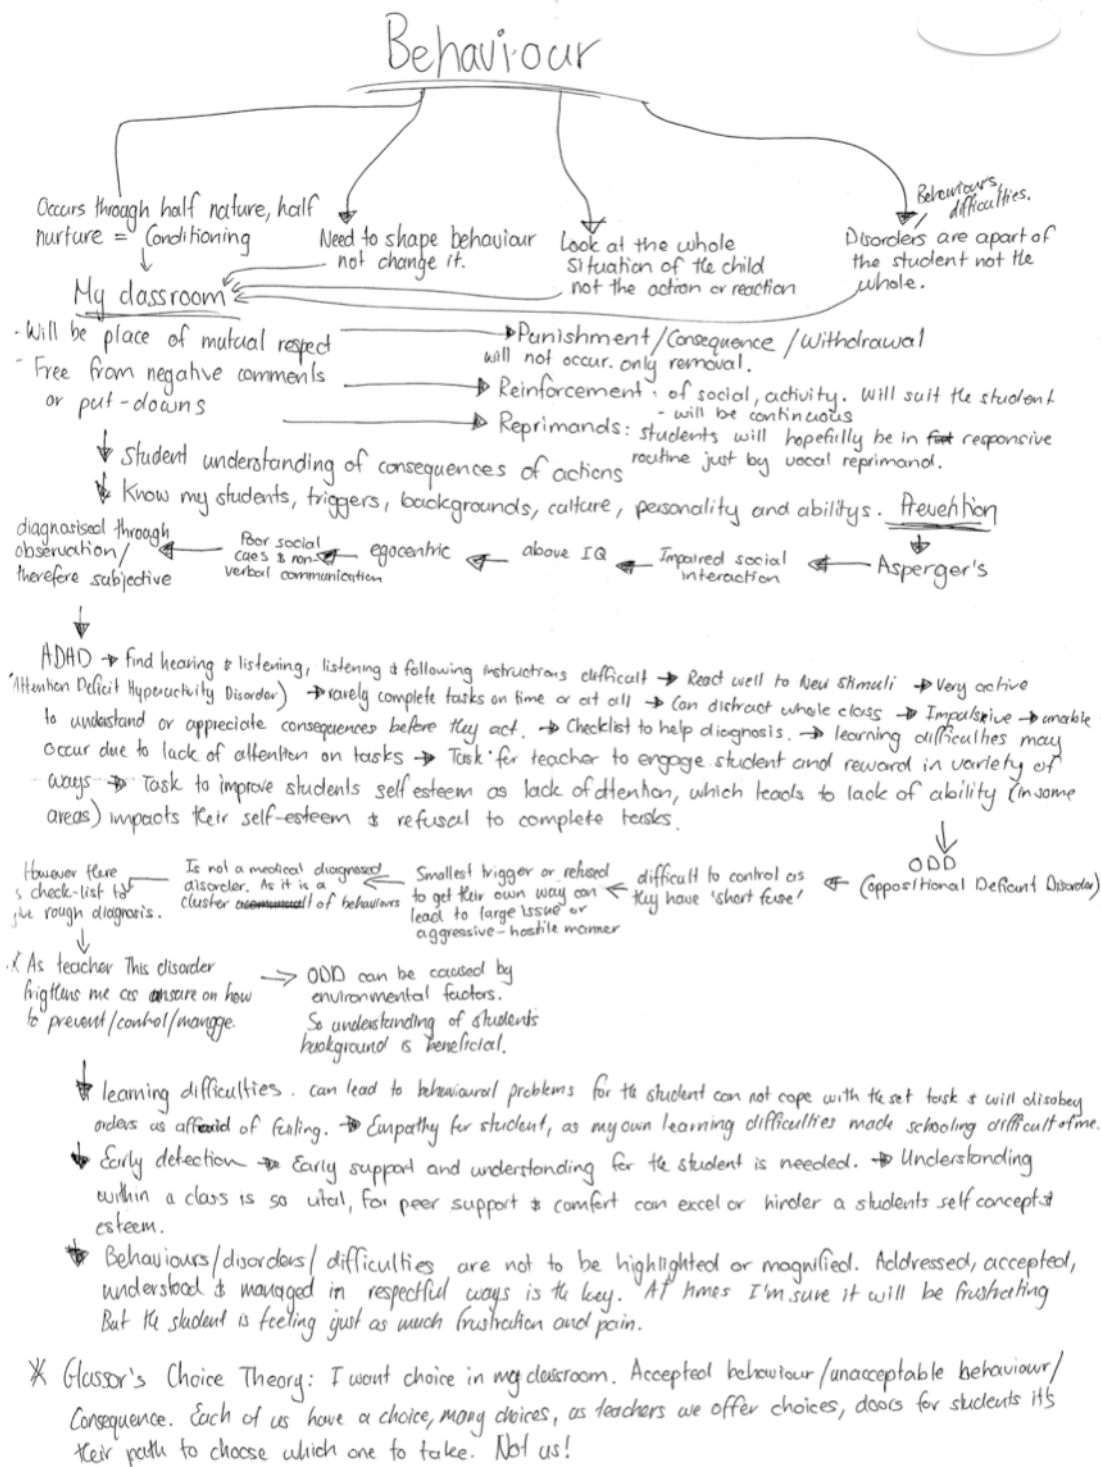 Behaviour
Occurs through half nature, half
nurture = Conditioning
Need to shape behaviour
not change it.
Look at the whole
situation of the child
not the action or reaction
Behaviours,
difficulties.
Disorders are apart of
the student not the
whole.
My classroom
- Will be place of mutual respect
- Free from negative comments
or put-downs
Punishment/Consequence/Withdrawal
will not occur. only removal.
Reinforcement: of social, activity. Will suit the student
- will be continuous
Reprimands: students will hopefully be in responsive
routine just by vocal reprimand.
Student understanding of consequences of actions
Know my students, triggers, backgrounds, culture, personality and abilitys. Prevention
Asperger's
Impaired social
interaction
above IQ
egocentric
Poor social
cues & non-
verbal communication
diagnosised through
observation/
therefore subjective
ADHD → find hearing & listening, listening & following instructions difficult → React well to New Stimuli → Very active
(Attention Deficit Hyperactivity Disorder) → rarely complete tasks on time or at all → Can distract whole class → Impulsive → unable
to understand or appreciate consequences before they act. → Checklist to help diagnosis. → learning difficulties may
occur due to lack of attention on tasks → Task for teacher to engage student and reward in variety of
ways → Task to improve students self esteem as lack of attention, which leads to lack of ability (in some
areas) impacts their self-esteem & refusal to complete tasks.
ODD
(oppositional Deficant Disorder)
difficult to control as
they have 'short fuse'
Smallest trigger or refused
to get their own way can
lead to large issue or
aggressive-hostile manner
Is not a medical diagnosed
disorder. As it is a
cluster of behaviours
However there
is check-list to
give rough diagnosis.
* As teacher This disorder
frigtens me as unsure on how
to prevent/control/manage.
→ ODD can be caused by
environmental factors.
So understanding of students
background is beneficial.
learning difficulties. can lead to behavioural problems for the student can not cope with the set task & will disobey
orders as affraid of failing. → Empathy for student, as my own learning difficulties made schooling difficult for me.
Early detection → Early support and understanding for the student is needed. → Understanding
within a class is so vital, for peer support & comfort can excel or hinder a students self concept &
esteem.
Behaviours/disorders/difficulties are not to be highlighted or magnified. Addressed, accepted,
understood & managed in respectful ways is the key. At times I'm sure it will be frustrating
But the student is feeling just as much frustration and pain.
* Glassor's Choice Theory: I want choice in my classroom. Accepted behaviour/unacceptable behaviour/
Consequence. Each of us have a choice, many choices, as teachers we offer choices, doors for students it's
their path to choose which one to take. Not us!